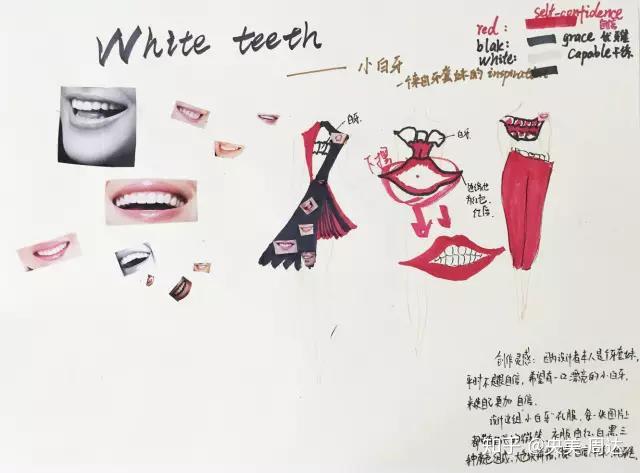 White teeth
小白牙
一个来自牙套妹的 inspiration
self-confidence
red:
自信
blak:
grace 优雅
White:
Capable 干练
白牙
白牙
下摆
红唇
创作灵感: 因为设计者本人是个牙套妹,
平时不是很自信, 希望有一口漂亮的小白牙,
来使自己更加自信.
设计这组“小白牙”衣服, 每一张图片上
都
衣服由红白黑三
种颜色组成,
知乎 @央美周达